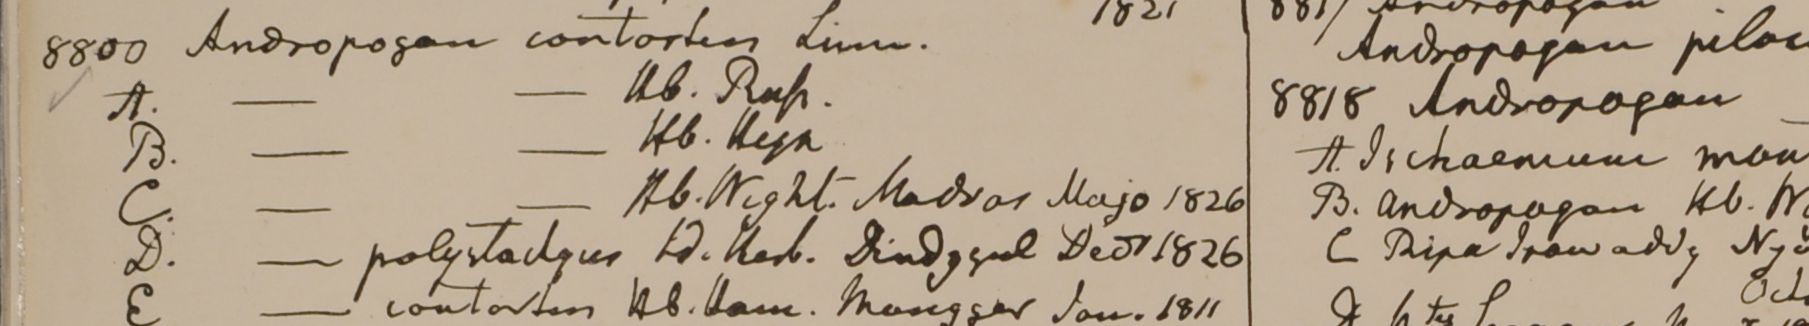 1821
8800 Andropogon contortus Linn.
A. — — Hb. Russ.
B. — — Hb. Heyn
C. — — Hb. Wight. Madras Majo 1826
D. — polystachyus Id. Herb. Dindygul Dec 1826
E — contortus Hb. Ham. Mongger Jan. 1811
Andropogon
8818 Andropogon
A. Ischaemum
B. Andropogon Hb.
C Ripa Irawaddy